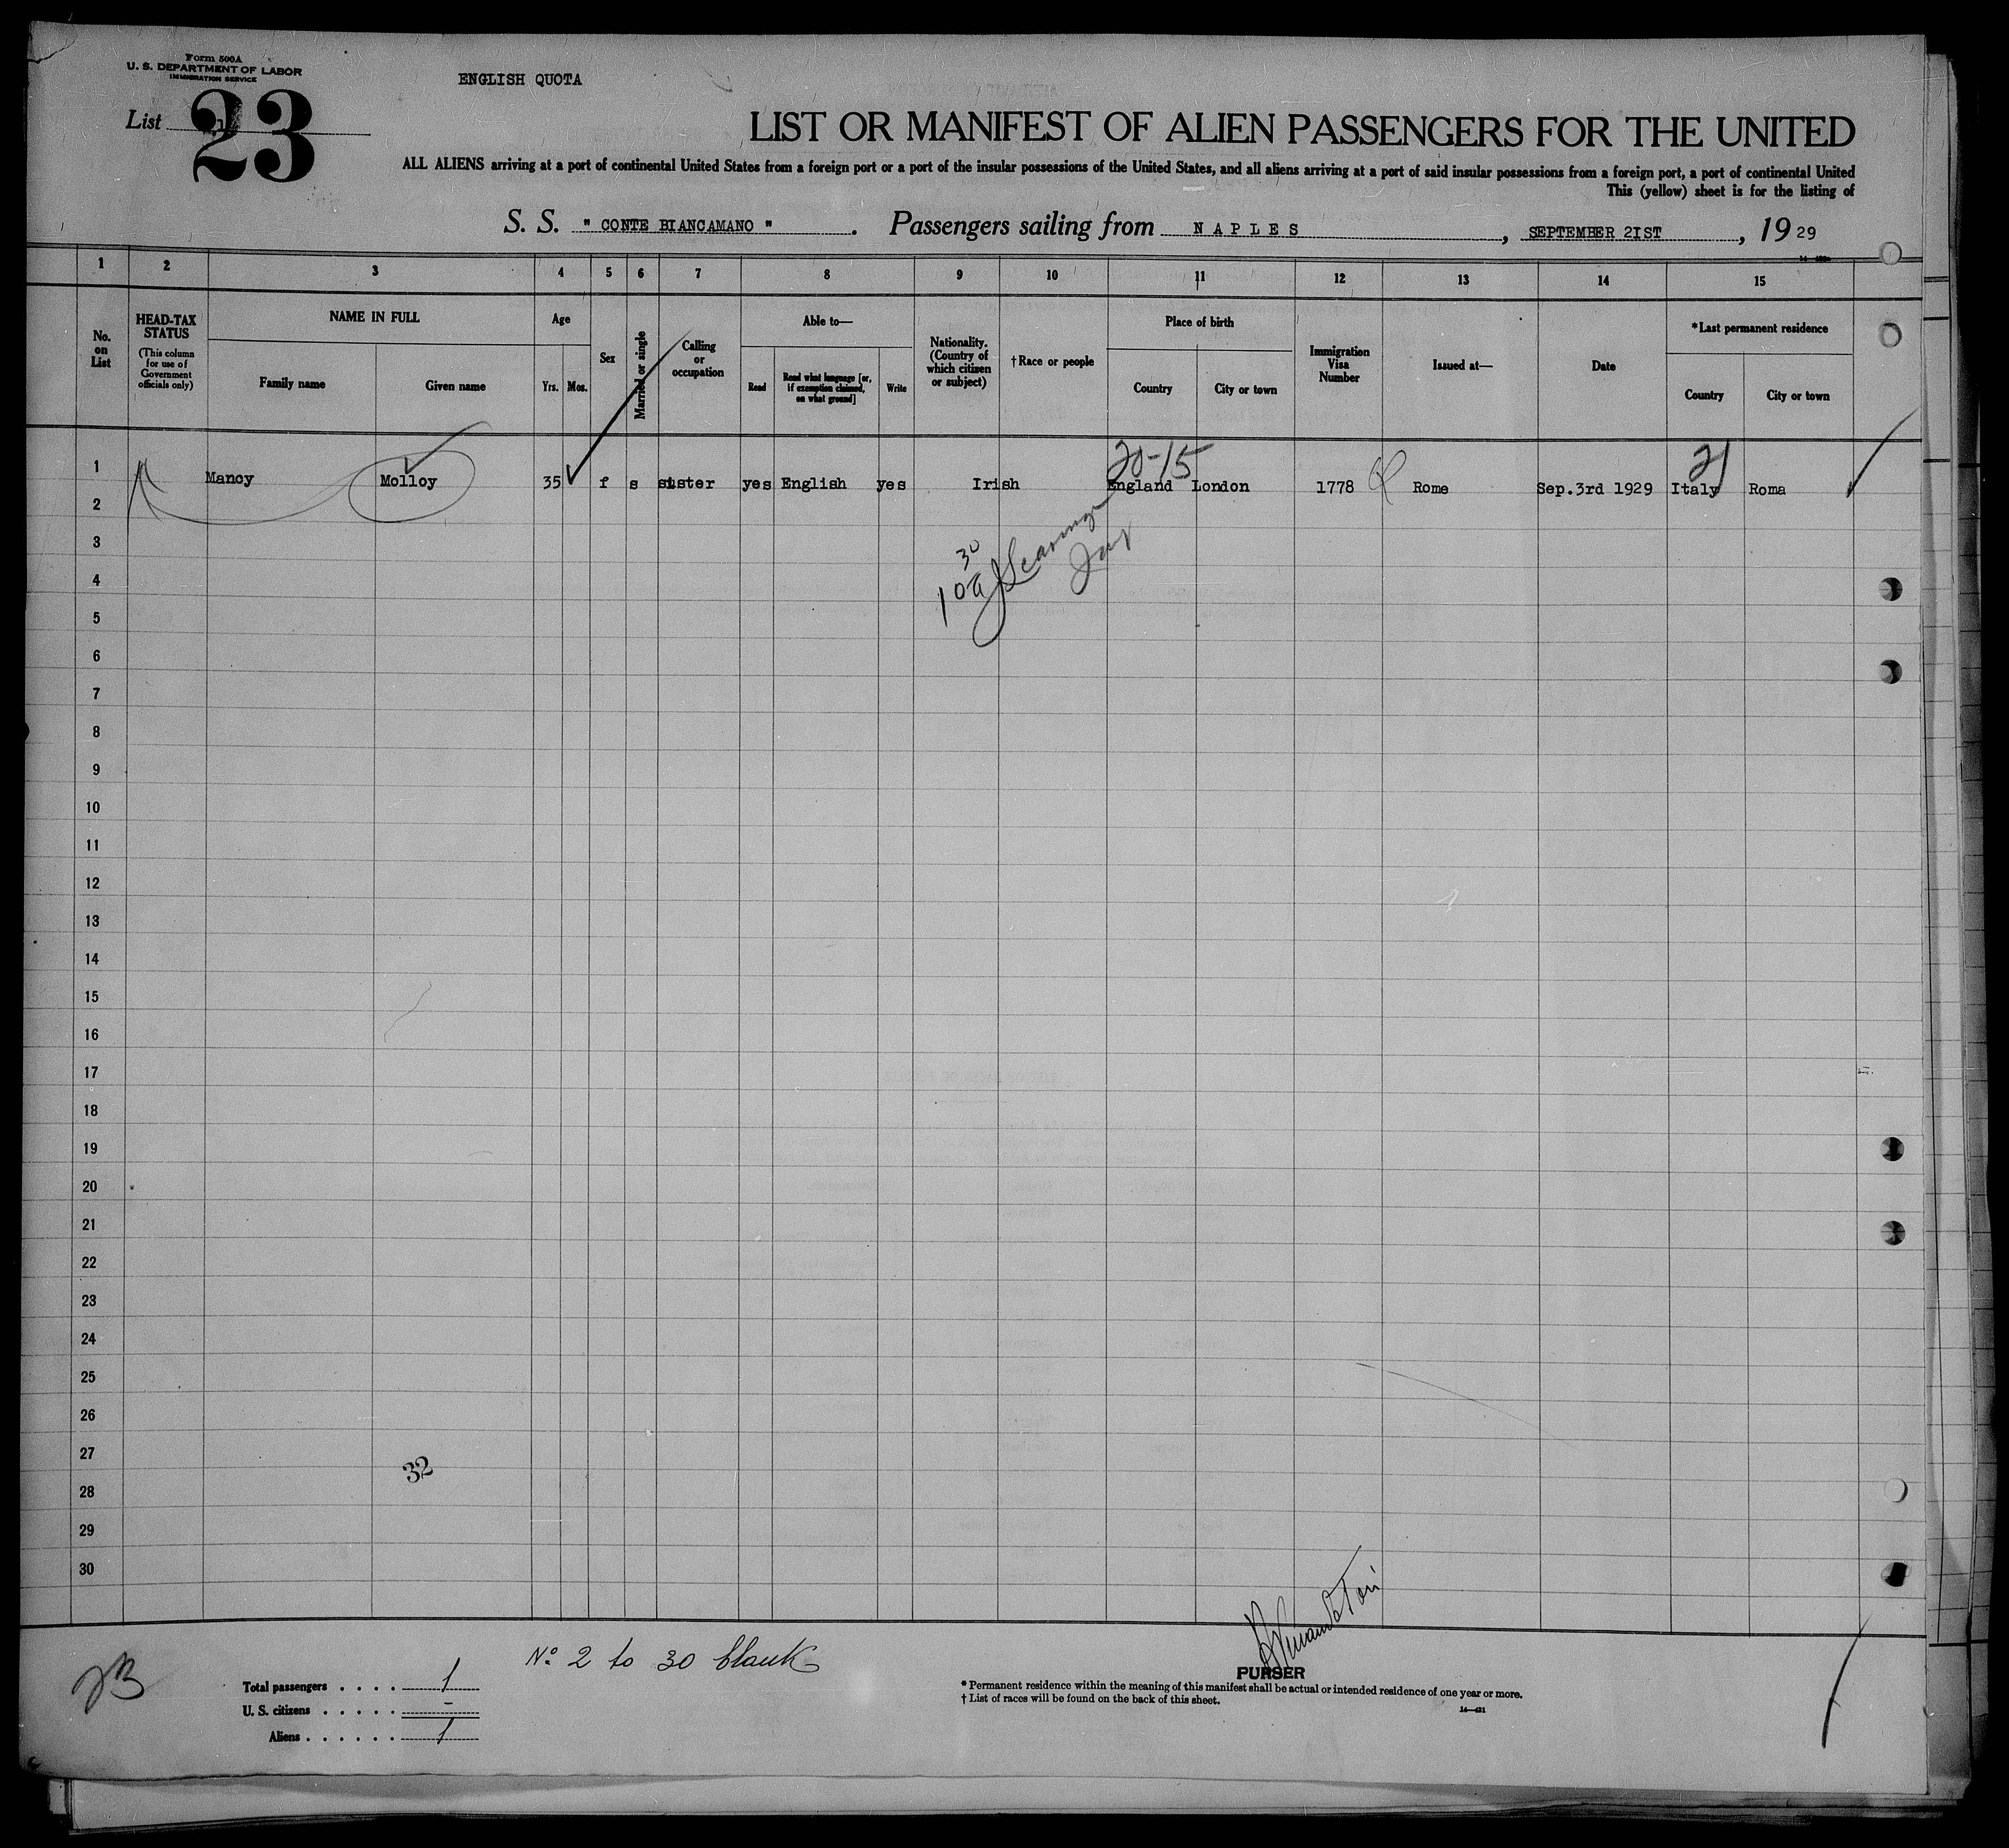 Form 500A
U. S. DEPARTMENT OF LABOR
IMMIGRATION SERVICE
ENGLISH QUOTA
List 23
LIST OR MANIFEST OF ALIEN PASSENGERS FOR THE UNITED
ALL ALIENS arriving at a port of continental United States from a foreign port or a port of the insular possessions of the United States, and all aliens arriving at a port of said insular possessions from a foreign port, a port of continental United
This (yellow) sheet is for the listing of
S. S. " CONTE BIANCAMANO " . Passengers sailing from NAPLES , SEPTEMBER 21ST , 19 29
1 2 3 4 5 6 7 8 9 10 11 12 13 14 15
No. on List
HEAD-TAX STATUS
(This column for use of Government officials only)
NAME IN FULL
Family name
Given name
Age
Yrs.
Mos.
Sex
Married or single
Calling or occupation
Able to—
Read
Read what language [or, if exemption claimed, on what ground]
Write
Nationality. (Country of which citizen or subject)
†Race or people
Place of birth
Country
City or town
Immigration Visa Number
Issued at—
Date
*Last permanent residence
Country
City or town
20-15
21
1 Mancy Molloy 35 f s sister yes English yes Irish England London 1778 Rome Sep.3rd 1929 Italy Roma
2
3
30
4
10a
5
6
7
8
9
10
11
12
13
14
15
16
17
18
19
20
21
22
23
24
25
26
27
32
28
29
30
No. 2 to 30 blank
PURSER
Total passengers . . . . 1
U. S. citizens . . . . . -
Aliens . . . . . . 1
* Permanent residence within the meaning of this manifest shall be actual or intended residence of one year or more.
† List of races will be found on the back of this sheet.